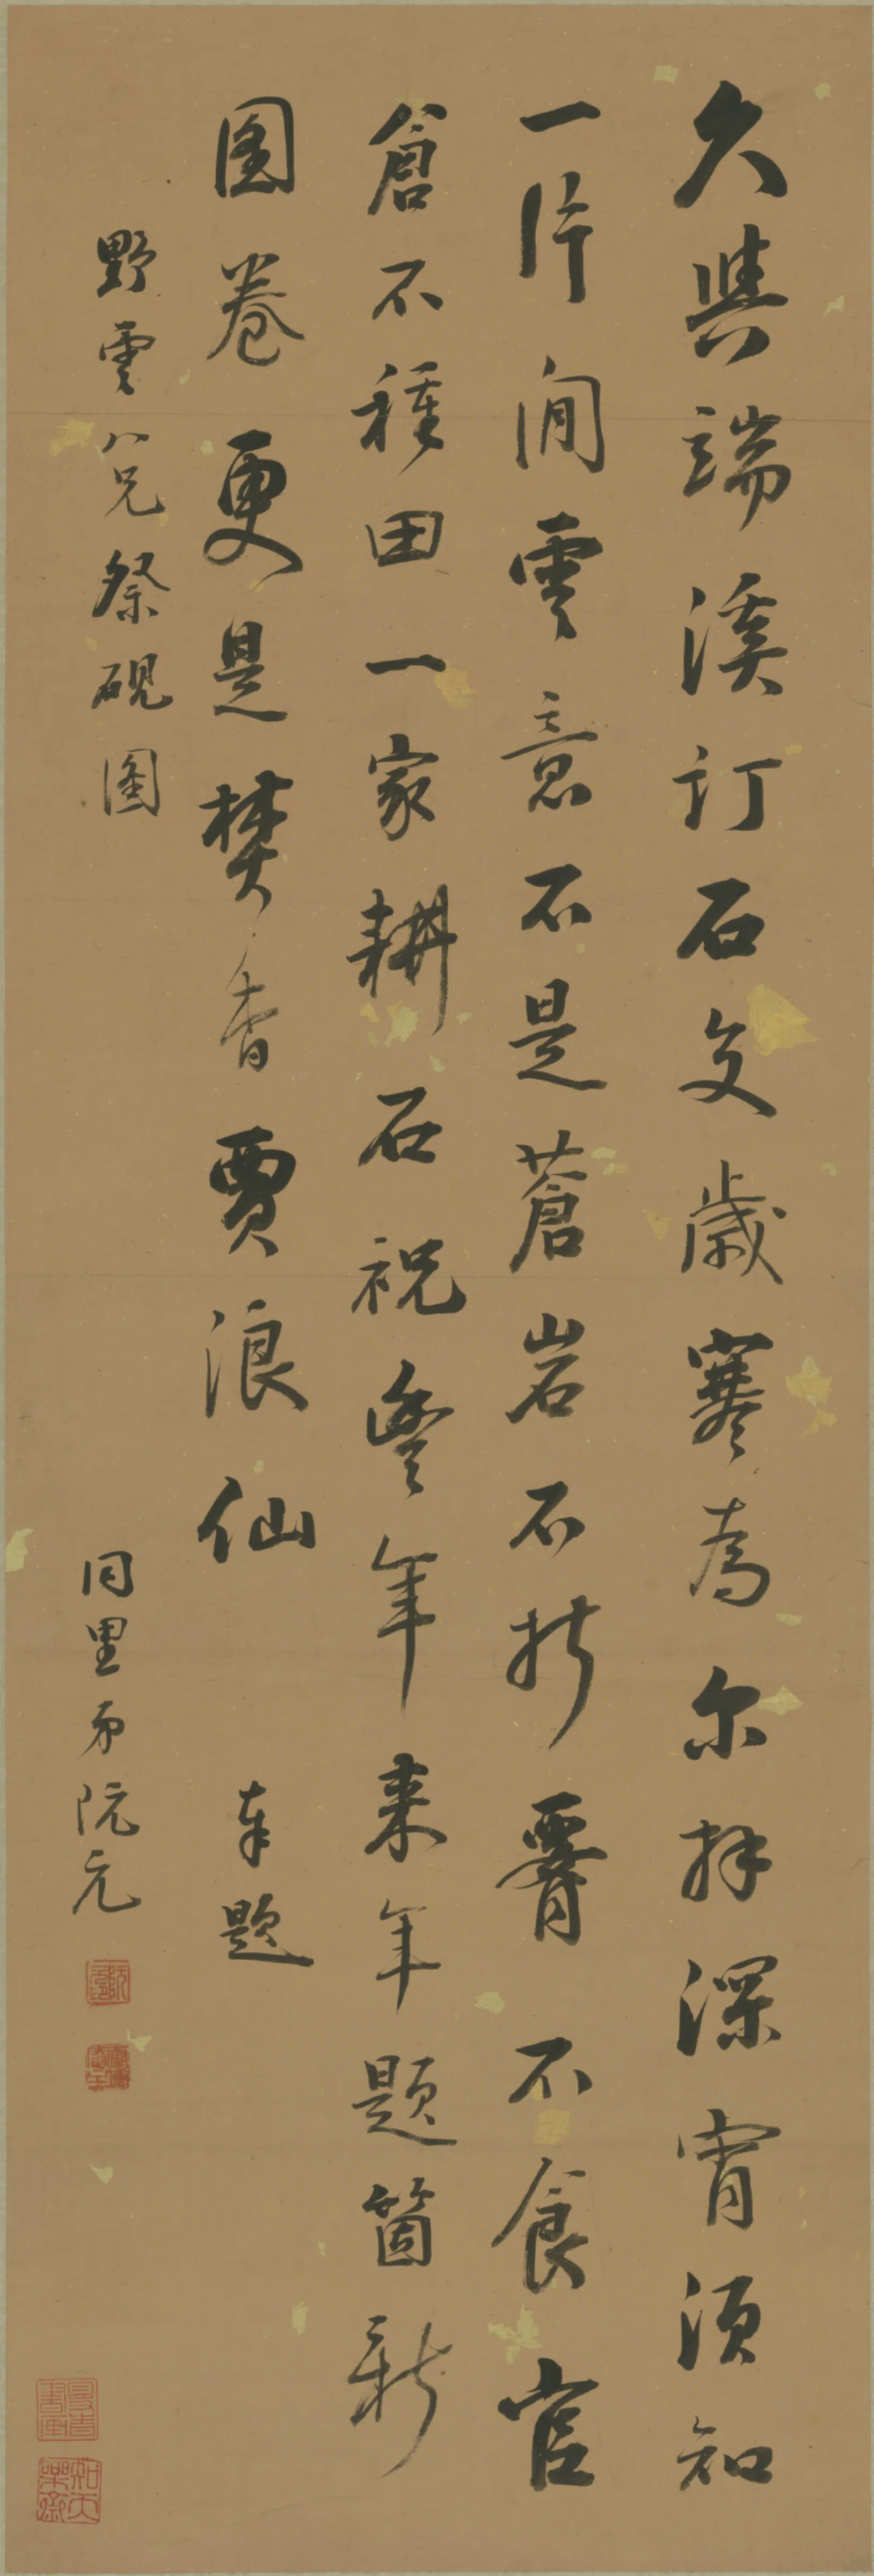 久與端溪訂石交歲寒為尔拜深宵須知
一片閒雲意不是蒼岩石折腰不食官
倉不種田一家耕石祝豐年来年題箇新
圖卷更是焚香賈浪仙 奉題
野雲八兄祭硯圖
同里弟阮元